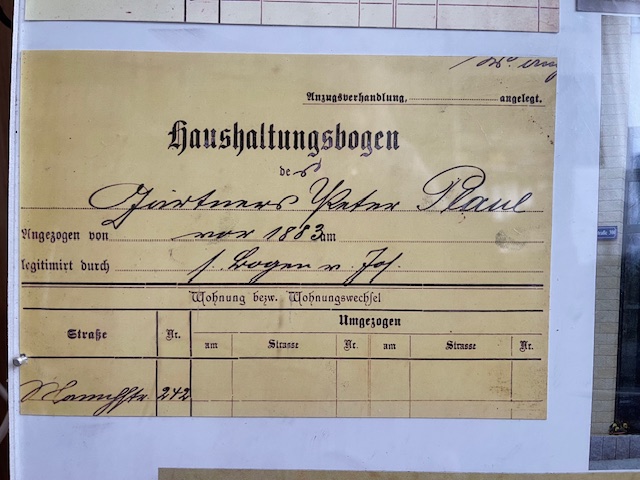 Anzugsverhandlung, angelegt.
Haushaltungsbogen
des
Gärtners Peter Plaul
Angezogen von vor 1883 am
legitimirt durch s. Bogen v. Jos.
Wohnung bezw. Wohnungswechsel
Straße Nr. Umgezogen
am Strasse Nr. am Strasse Nr.
242